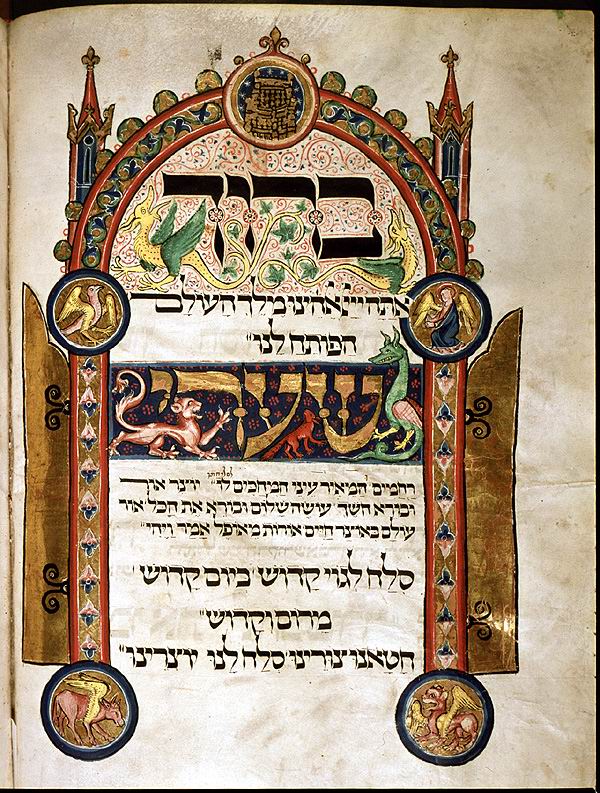 ברוך
אתה ייי אלהינו מלך העולם
הפותח לנו
שערי
רחמים המאיר עיני המחכים יוצר אור
ובורא חשך עושה שלום ובורא את הכל אור
עולם באוצר חיים אורות מאופל אמר ויהי
סלח לגוי קדוש ביום קדוש
מרום וקדוש
חטאנו צורינו סלח לנו יוצרינו